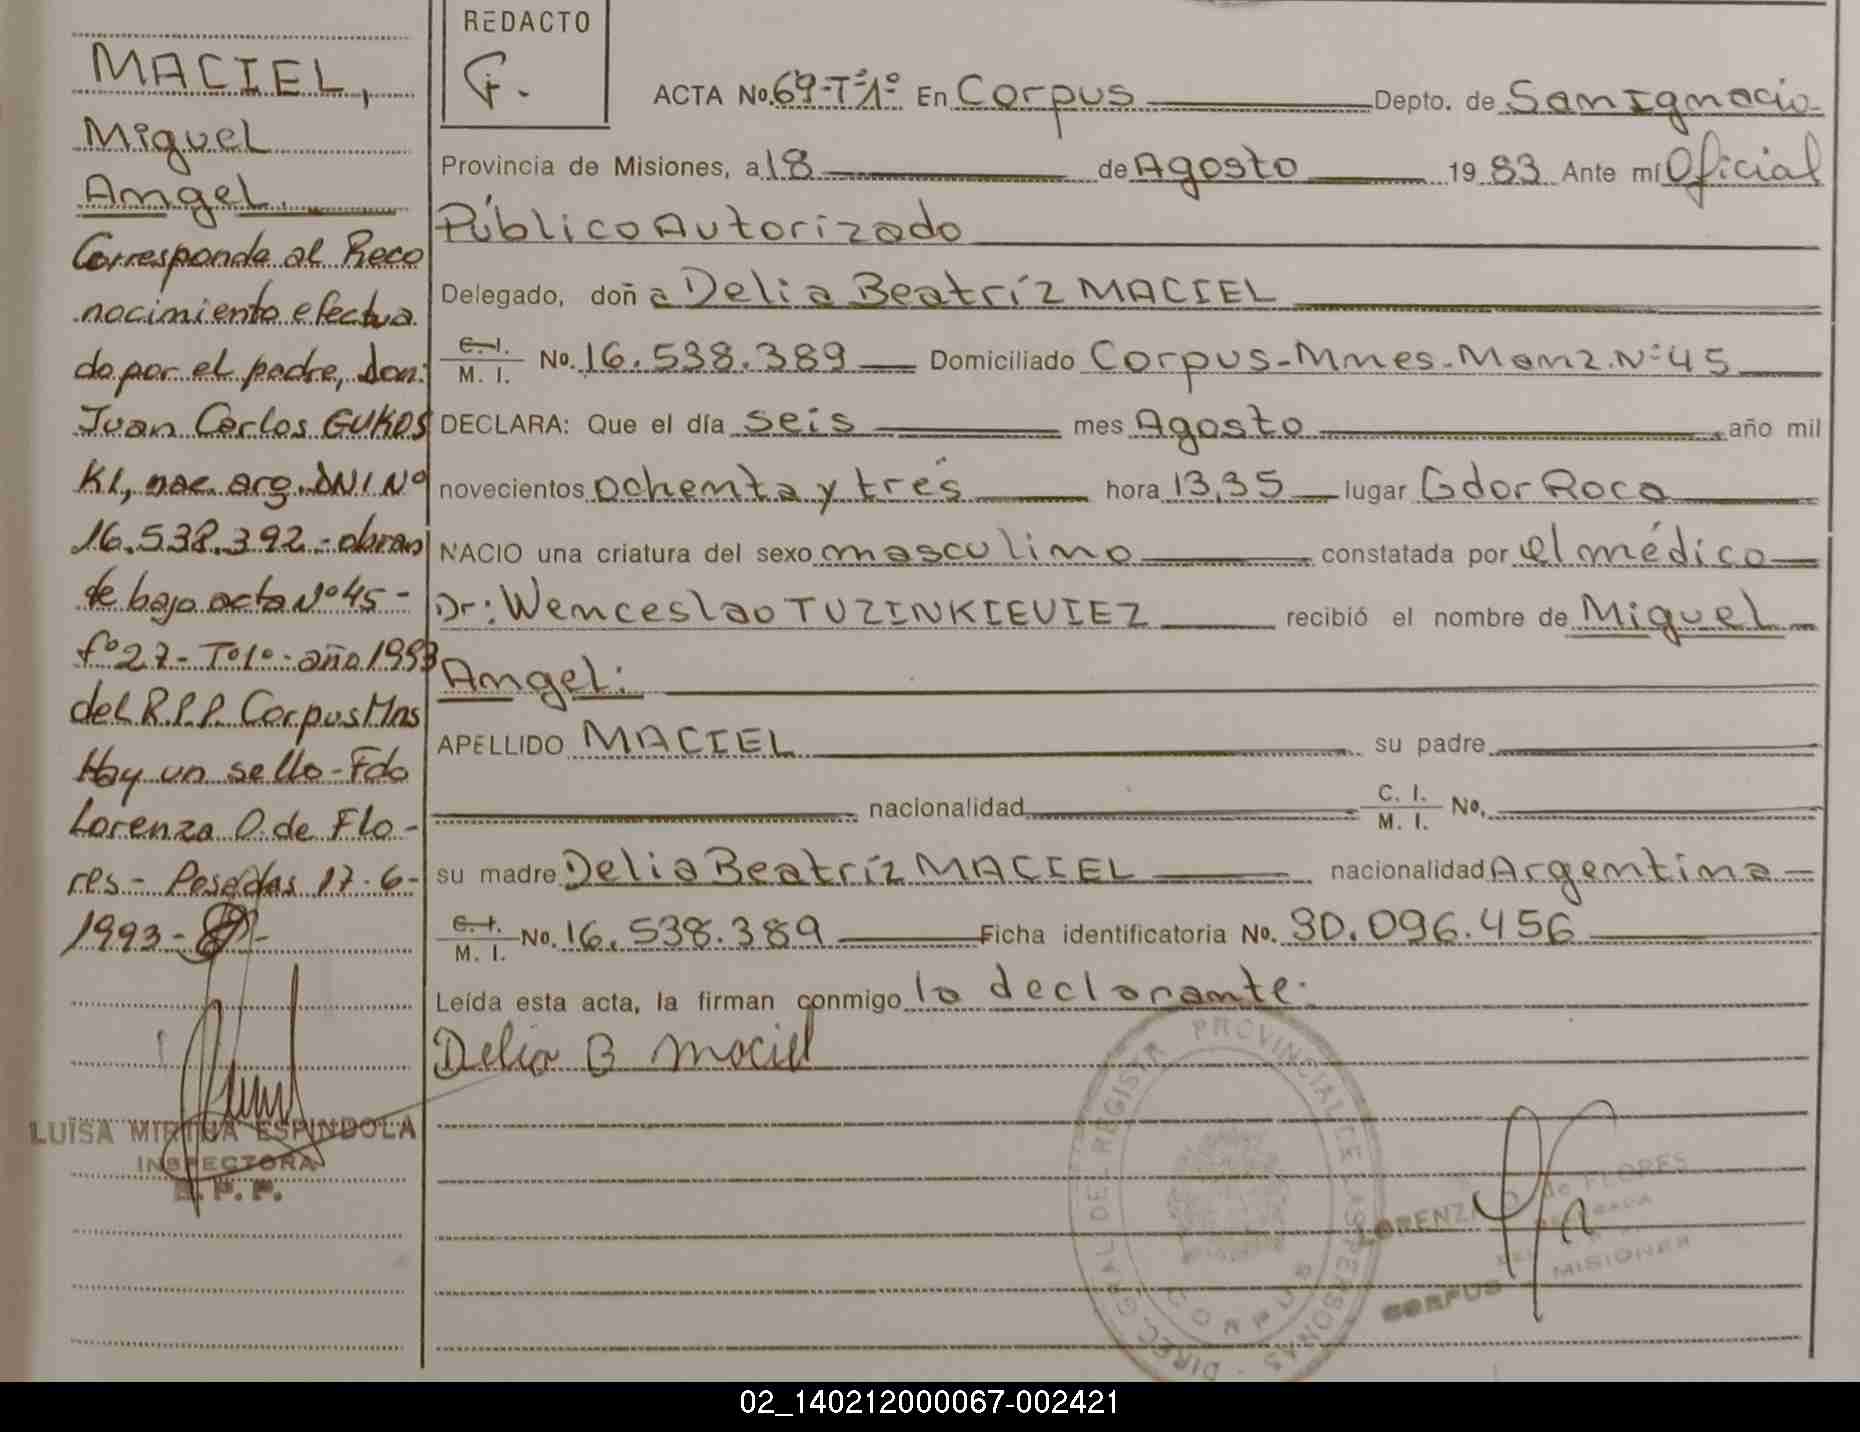 MACIEL,
Miguel
Angel.
Corresponde al Reco
nocimiento efectua
do por el padre, Don:
Juan Carlos GUKOS
KI, nac. arg. DNI Nº
16.538.392 - obran
te bajo acta Nº 45 -
fº 27 - Tº 1º - año 1993
del R.P.P. Corpus Mns
Hay un sello - Fdo
Lorenza O. de Flo -
res - Posadas 17 - 6 -
1993 -
LUISA MIRTHA ESPINDOLA
INSPECTORA
R. P. P.
REDACTO
ACTA No. 69-Tº1º En Corpus Depto. de San Ignacio
Provincia de Misiones, a 18 de Agosto 19 83 Ante mí Oficial
Público Autorizado
Delegado, doña Delia Beatríz MACIEL
C. I. / M. I. No. 16.538.389 Domiciliado Corpus-Mnes-Manz.Nº 45
DECLARA: Que el día seis mes Agosto año mil
novecientos ochenta y trés hora 13,35 lugar Gdor Roca
NACIO una criatura del sexo masculino constatada por el médico
Dr: Wenceslao TUZINKIEVIEZ recibió el nombre de Miguel
Angel:
APELLIDO MACIEL su padre
nacionalidad C. I. / M. I. No.
su madre Delia Beatríz MACIEL nacionalidad Argentina
C. I. / M. I. No. 16.538.389 Ficha identificatoria No. 30.096.456
Leída esta acta, la firman conmigo la declarante.
Delia B Maciel
DIREC. GRAL DE REGISTRO PROVINCIAL DE LAS PERSONAS
CORPUS
LORENZA O. de FLORES
DELEGADA
MISIONES
CORPUS
02_140212000067-002421